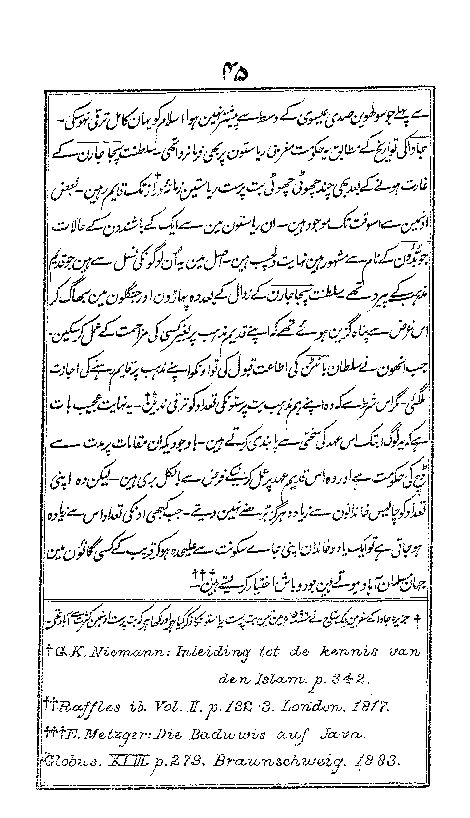 ۴۵
سے پہلے جو سولھوین صدی عیسوی کے وسط سے پیشتر نہین ہوا اسلام کو یہان کامل ترقی نہوسکی۔
جاوا کی تواریخ کے مطابق یہ حکومت مغربی ریاستون پر بھی فرمانروا تھی۔ سلطنت پجاجارن کے
غارت ہونے کے بعد بھی چند چھوٹی چھوٹی بت پرست ریاستین زمانۂ دراز تک قایم رہین۔ بعض
اونمین سے اسوقت تک موجود ہین۔ ان ریاستون مین سے ایک کے باشندون کے حالات
جو بیڈون کے نام سے مشہور ہین نہایت دلچسپ ہین۔ اصل مین یہ اُن لوگونکی نسل سے ہین جو قدیم
مذہب کے پیرو تھے سلطنت پجاجارن کے زوال کے بعد وہ پہاڑون اور جنگلون مین بھاگ کر
اس غرض سے پناہ گزین ہوئے تھے کہ اپنے قدیم مذہب پر بغیر کسی کی مزاحمت کے عمل کر سکین۔
جب انھون نے سلطان بانٹن کی اطاعت قبول کی تو اونکو اپنے مذہب پر قایم رہنے کی اجازت
ملگئی۔ مگر اس شرط سے کہ وہ اپنے ہم مذہب بت پرستونکی تعداد کو ترقی ندین††۔ یہ نہایت عجیب بات
ہے کہ یہ لوگ ابتک اس عہد کی سختی سے پابندی کرتے ہین۔ باوجودیکہ ان مقامات پر مدت سے
ڈچ کی حکومت ہے اور وہ اس قدیم عہد پر عمل کرنیکے فرض سے بالکل بری ہین۔ لیکن وہ اپنی
تعداد کو چالیس خاندانون سے زیادہ ہرگز بڑھنے نہین دیتے۔ جب کبھی اونکی تعداد اس سے زیادہ
ہو جاتی ہے تو ایک یا دو خاندان اپنی جاے سکونت سے علیحدہ ہو کر قریب کے کسی گانوُن مین
جہان مسلمان آباد ہوتے ہین بود و باش اختیار کر لیتے ہین†††
† G. K. Niemann: Inleiding tot de kennis van
den Islam. p. 342.
†† Raffles ib. Vol. II. p. 132-3. London. 1817.
††† E. Metzger: Die Baduwis auf Java.
Globus. XLIII. p. 279. Braunschweig. 1883.